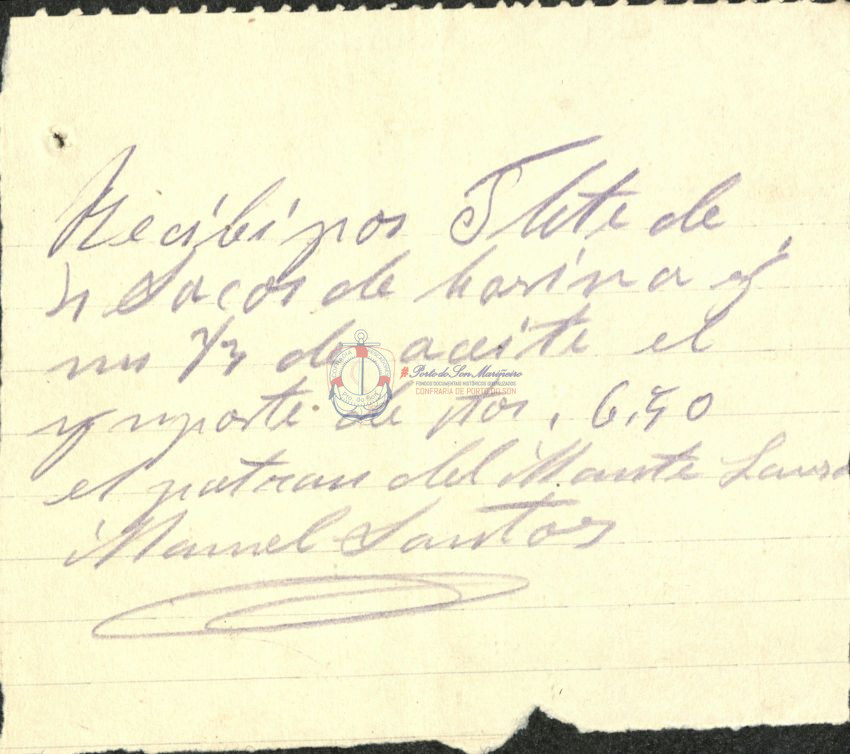 Recibi por Flete de
4 Sacos de harina y
un 1/3 de aceite el
ymporte de ptas, 6,50
el patron del Monte Louro
Manuel Santos
PORTO DO SON
#Porto do Son Mariñeiro
FONDOS DOCUMENTAIS HISTÓRICOS DIXITALIZADOS
CONFRARÍA DE PORTO DO SON